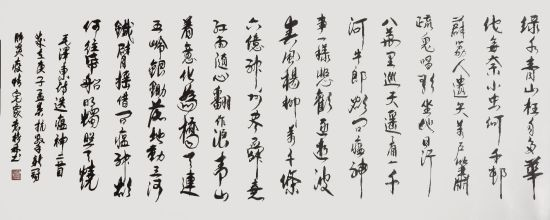 绿水青山枉自多華
佗無奈小虫何千邨
薜荔人遺矢万户萧
疏鬼唱歌坐地日行
八万里巡天遥看一千
河牛郎欲问瘟神
事一样悲歡逐逝波
春風楊柳万千條
六億神州尽舜尧
红雨随心翻作浪青山
着意化為橋天連
五岭银锄落地动三河
鐵臂摇借问瘟神欲
何往纸船明烛照天燒
毛澤東诗送瘟神二首
岁在庚子孟春抗擊新冠
肺炎疫情宅家书